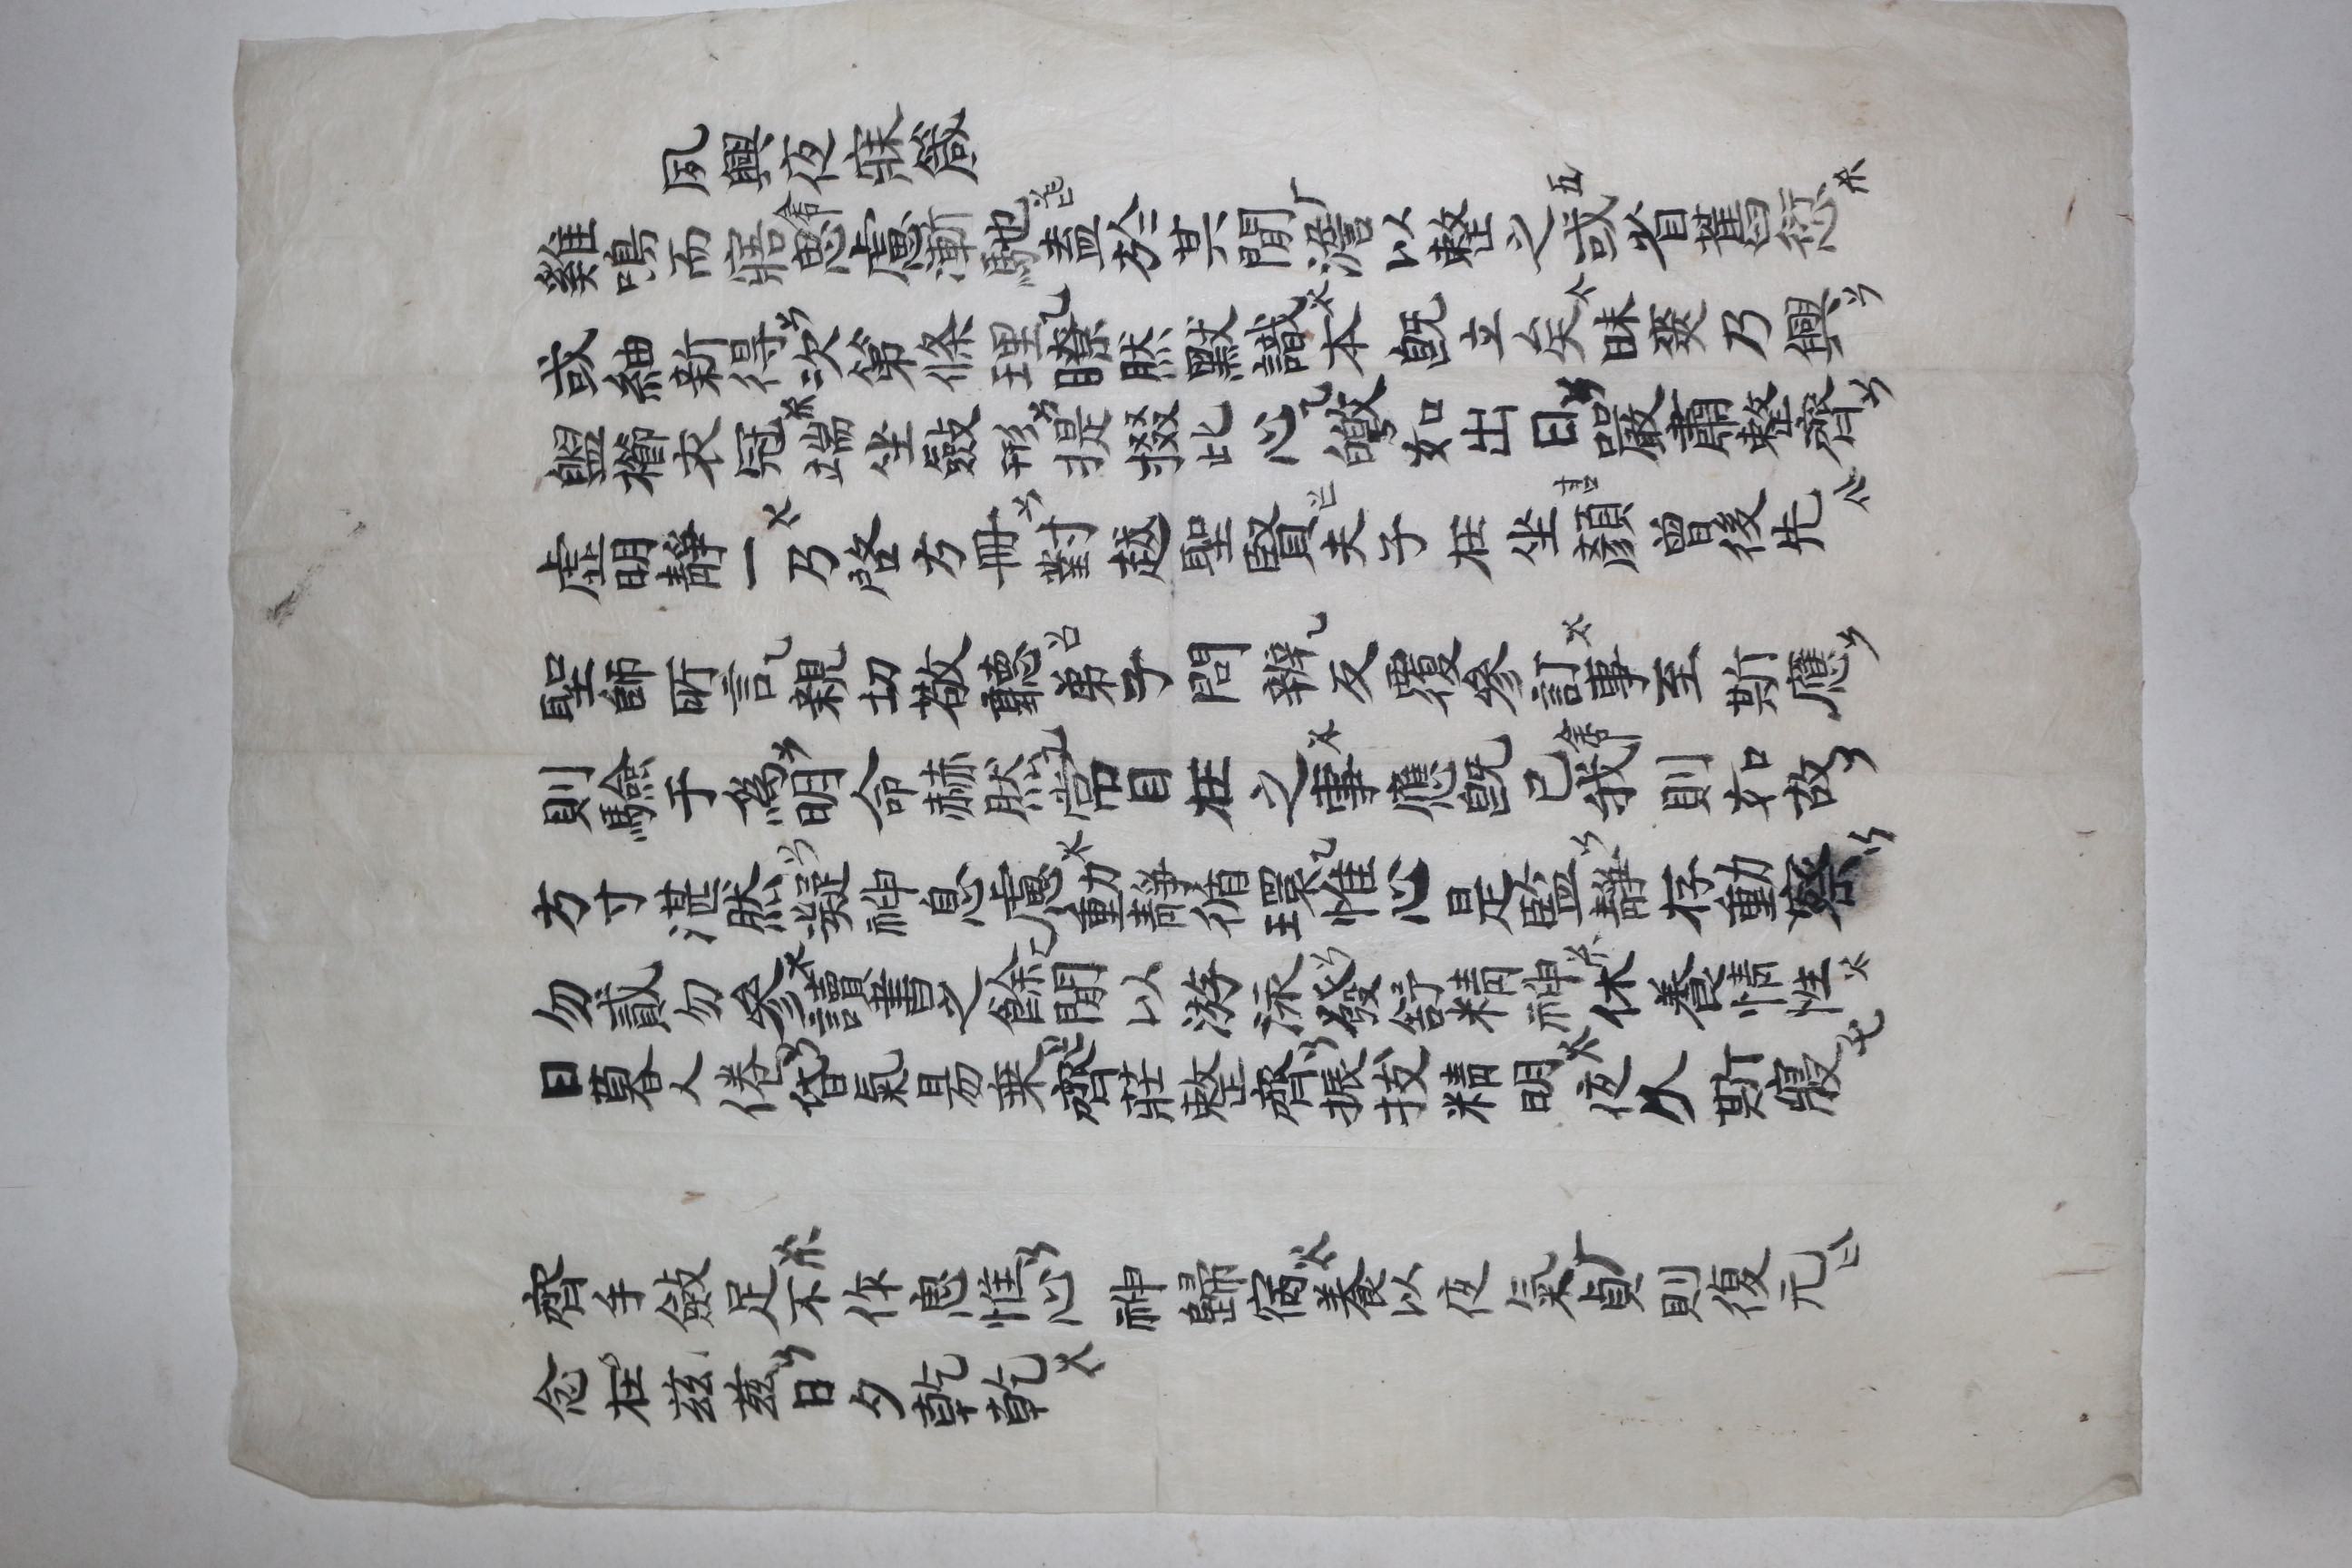 夙興夜寐箴
雞鳴而寤思慮漸馳盍於其間澹以整之或省舊愆
或紬新得次第條理瞭然默識本旣立矣昧爽乃興
盥櫛衣冠端坐斂形提掇此心皦如出日嚴肅整齊
虛明靜一乃啓方冊對越聖賢夫子在坐顔曾後先
聖師所言親切敬聽弟子問辨反覆參訂事至斯應
則驗于爲明命赫然常目在之事應旣已我則如故
方寸湛然凝神息慮動靜循環惟心是監靜存動察
勿貳勿參讀書之餘間以游泳發舒精神休養情性
日暮人倦昏氣易乘齋莊整齊振拔精明夜久斯寢
齊手斂足不作思惟心神歸宿養以夜氣貞則復元
念在玆玆日夕乾乾